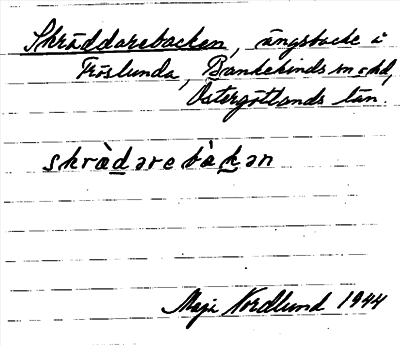 Skräddarebacken, ängsbacke i
Fröslunda, Bankekinds sn o. hd,
Östergötlands län.
skràdarebàkan
Maja Nordlund 1944